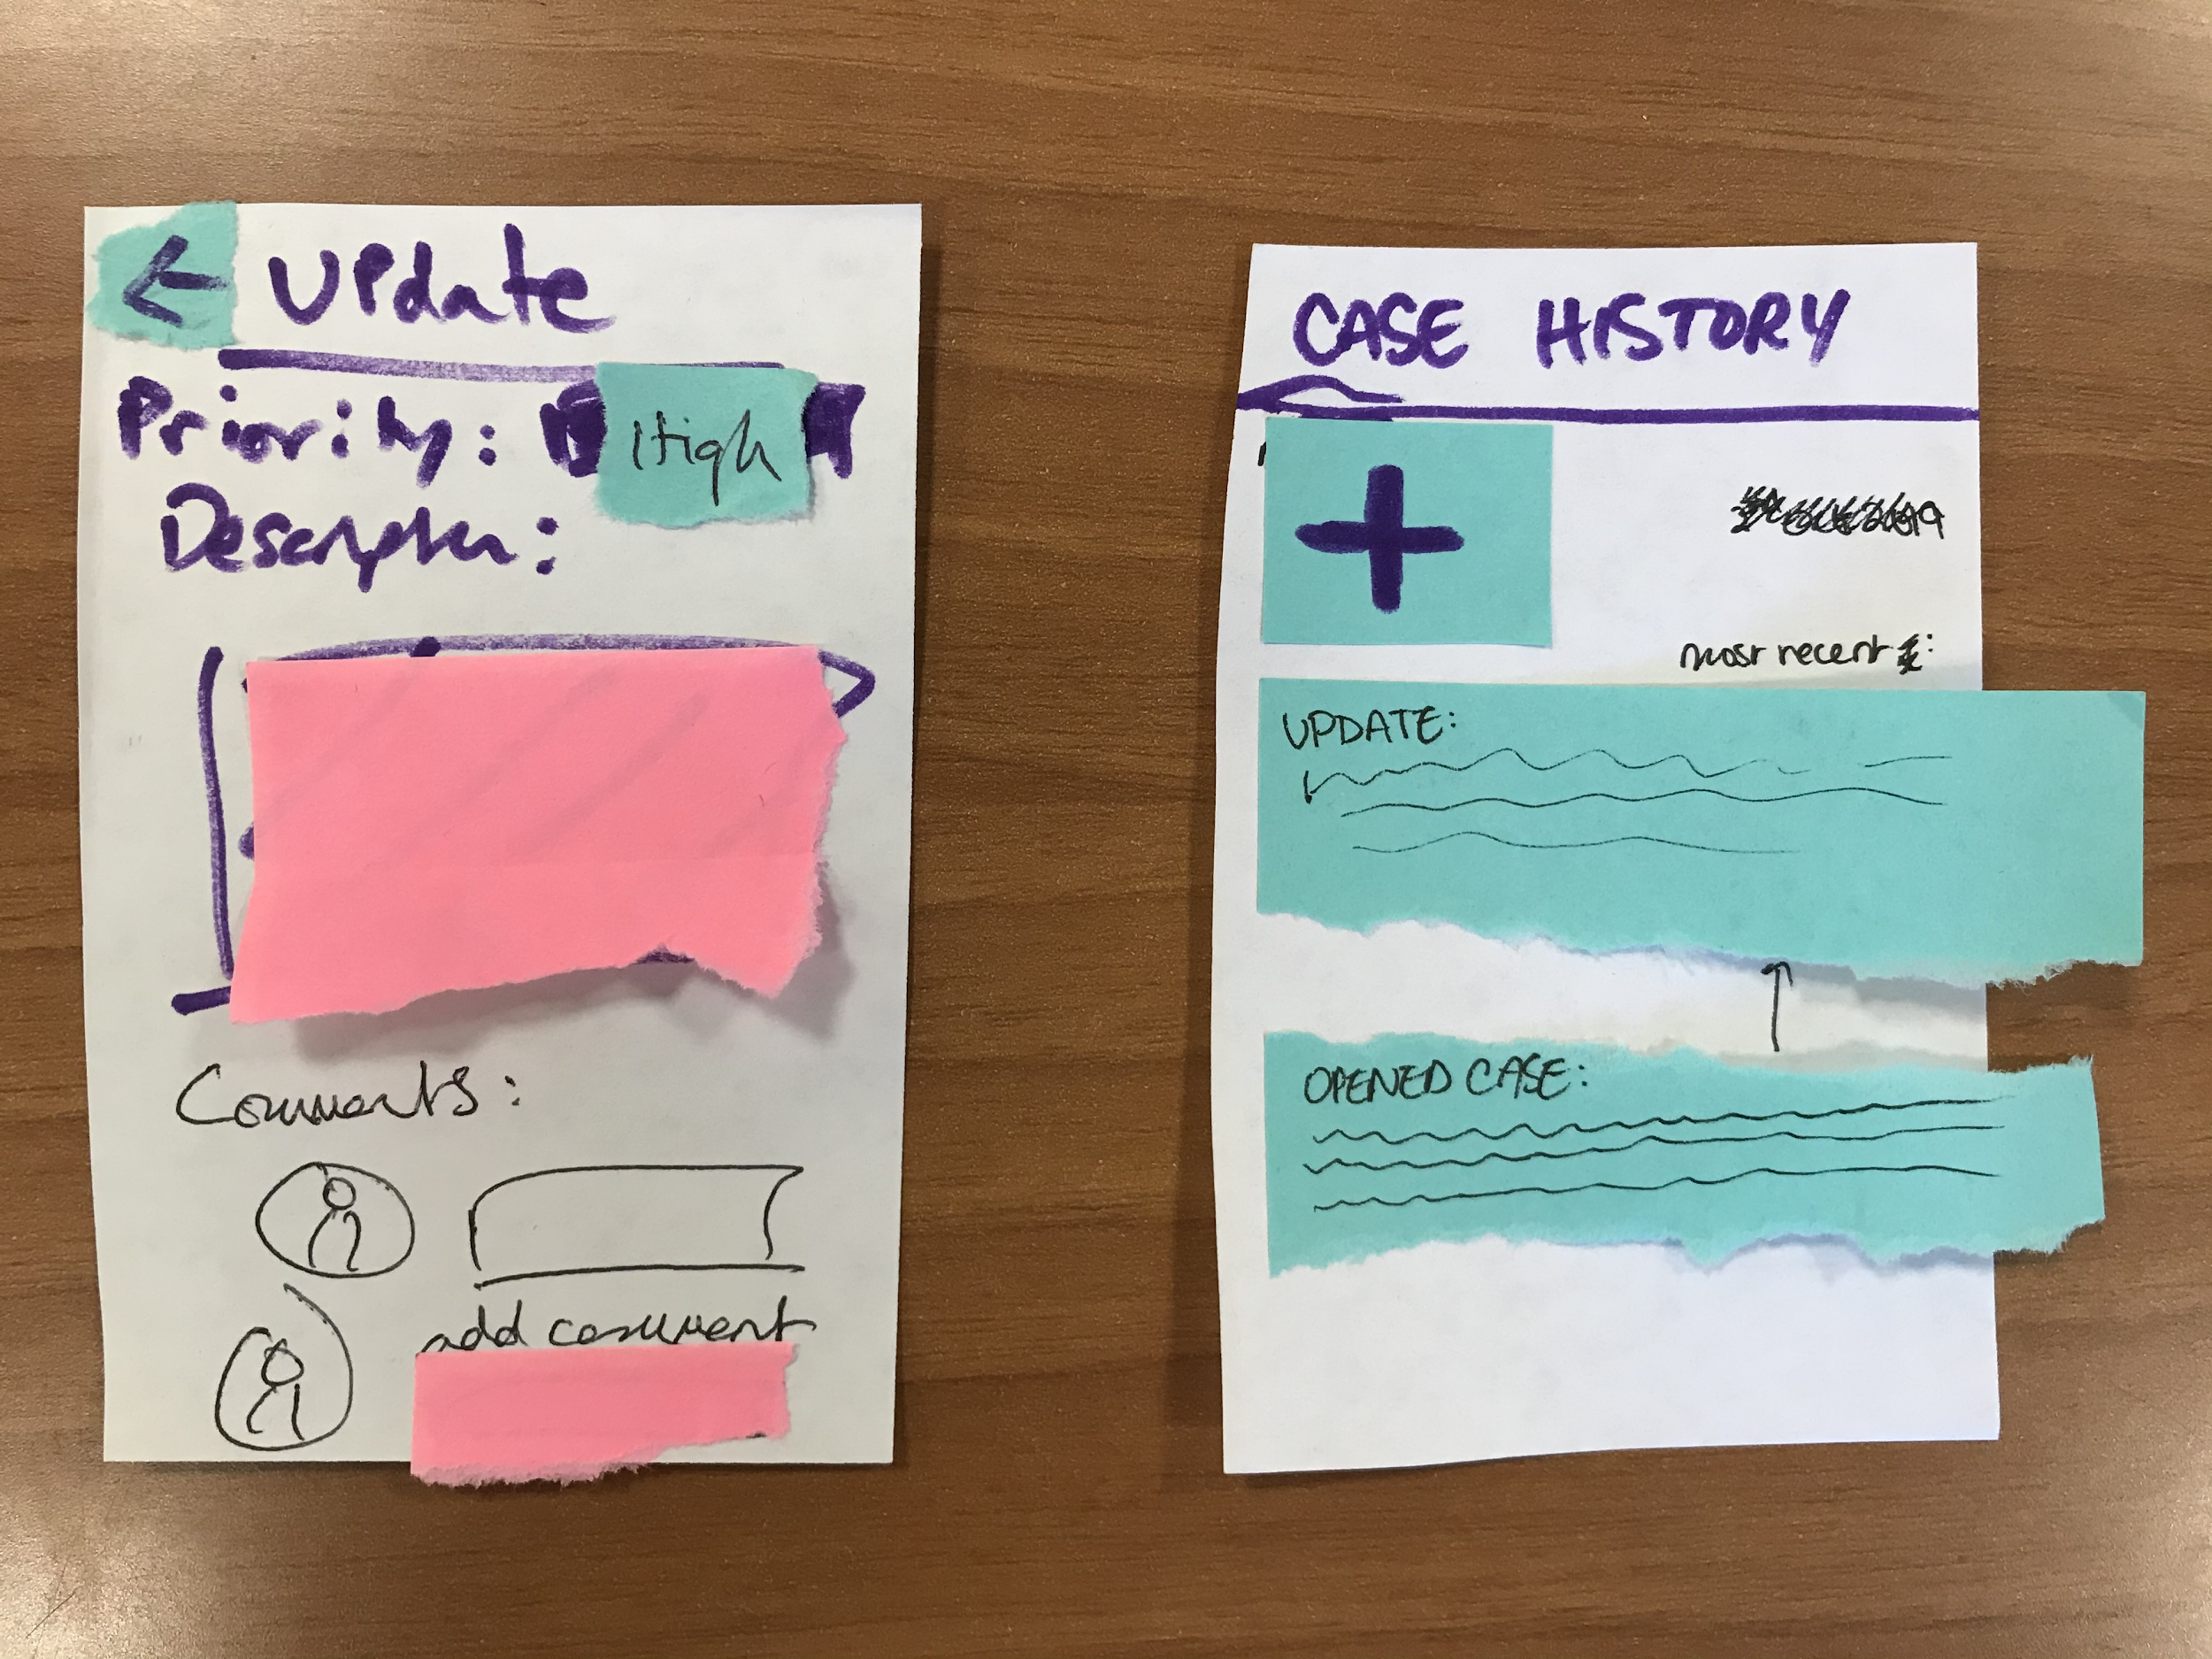 ← Update
Priority: High
Description:
Comments:
add comment
CASE HISTORY
+
most recent :
UPDATE:
OPENED CASE: